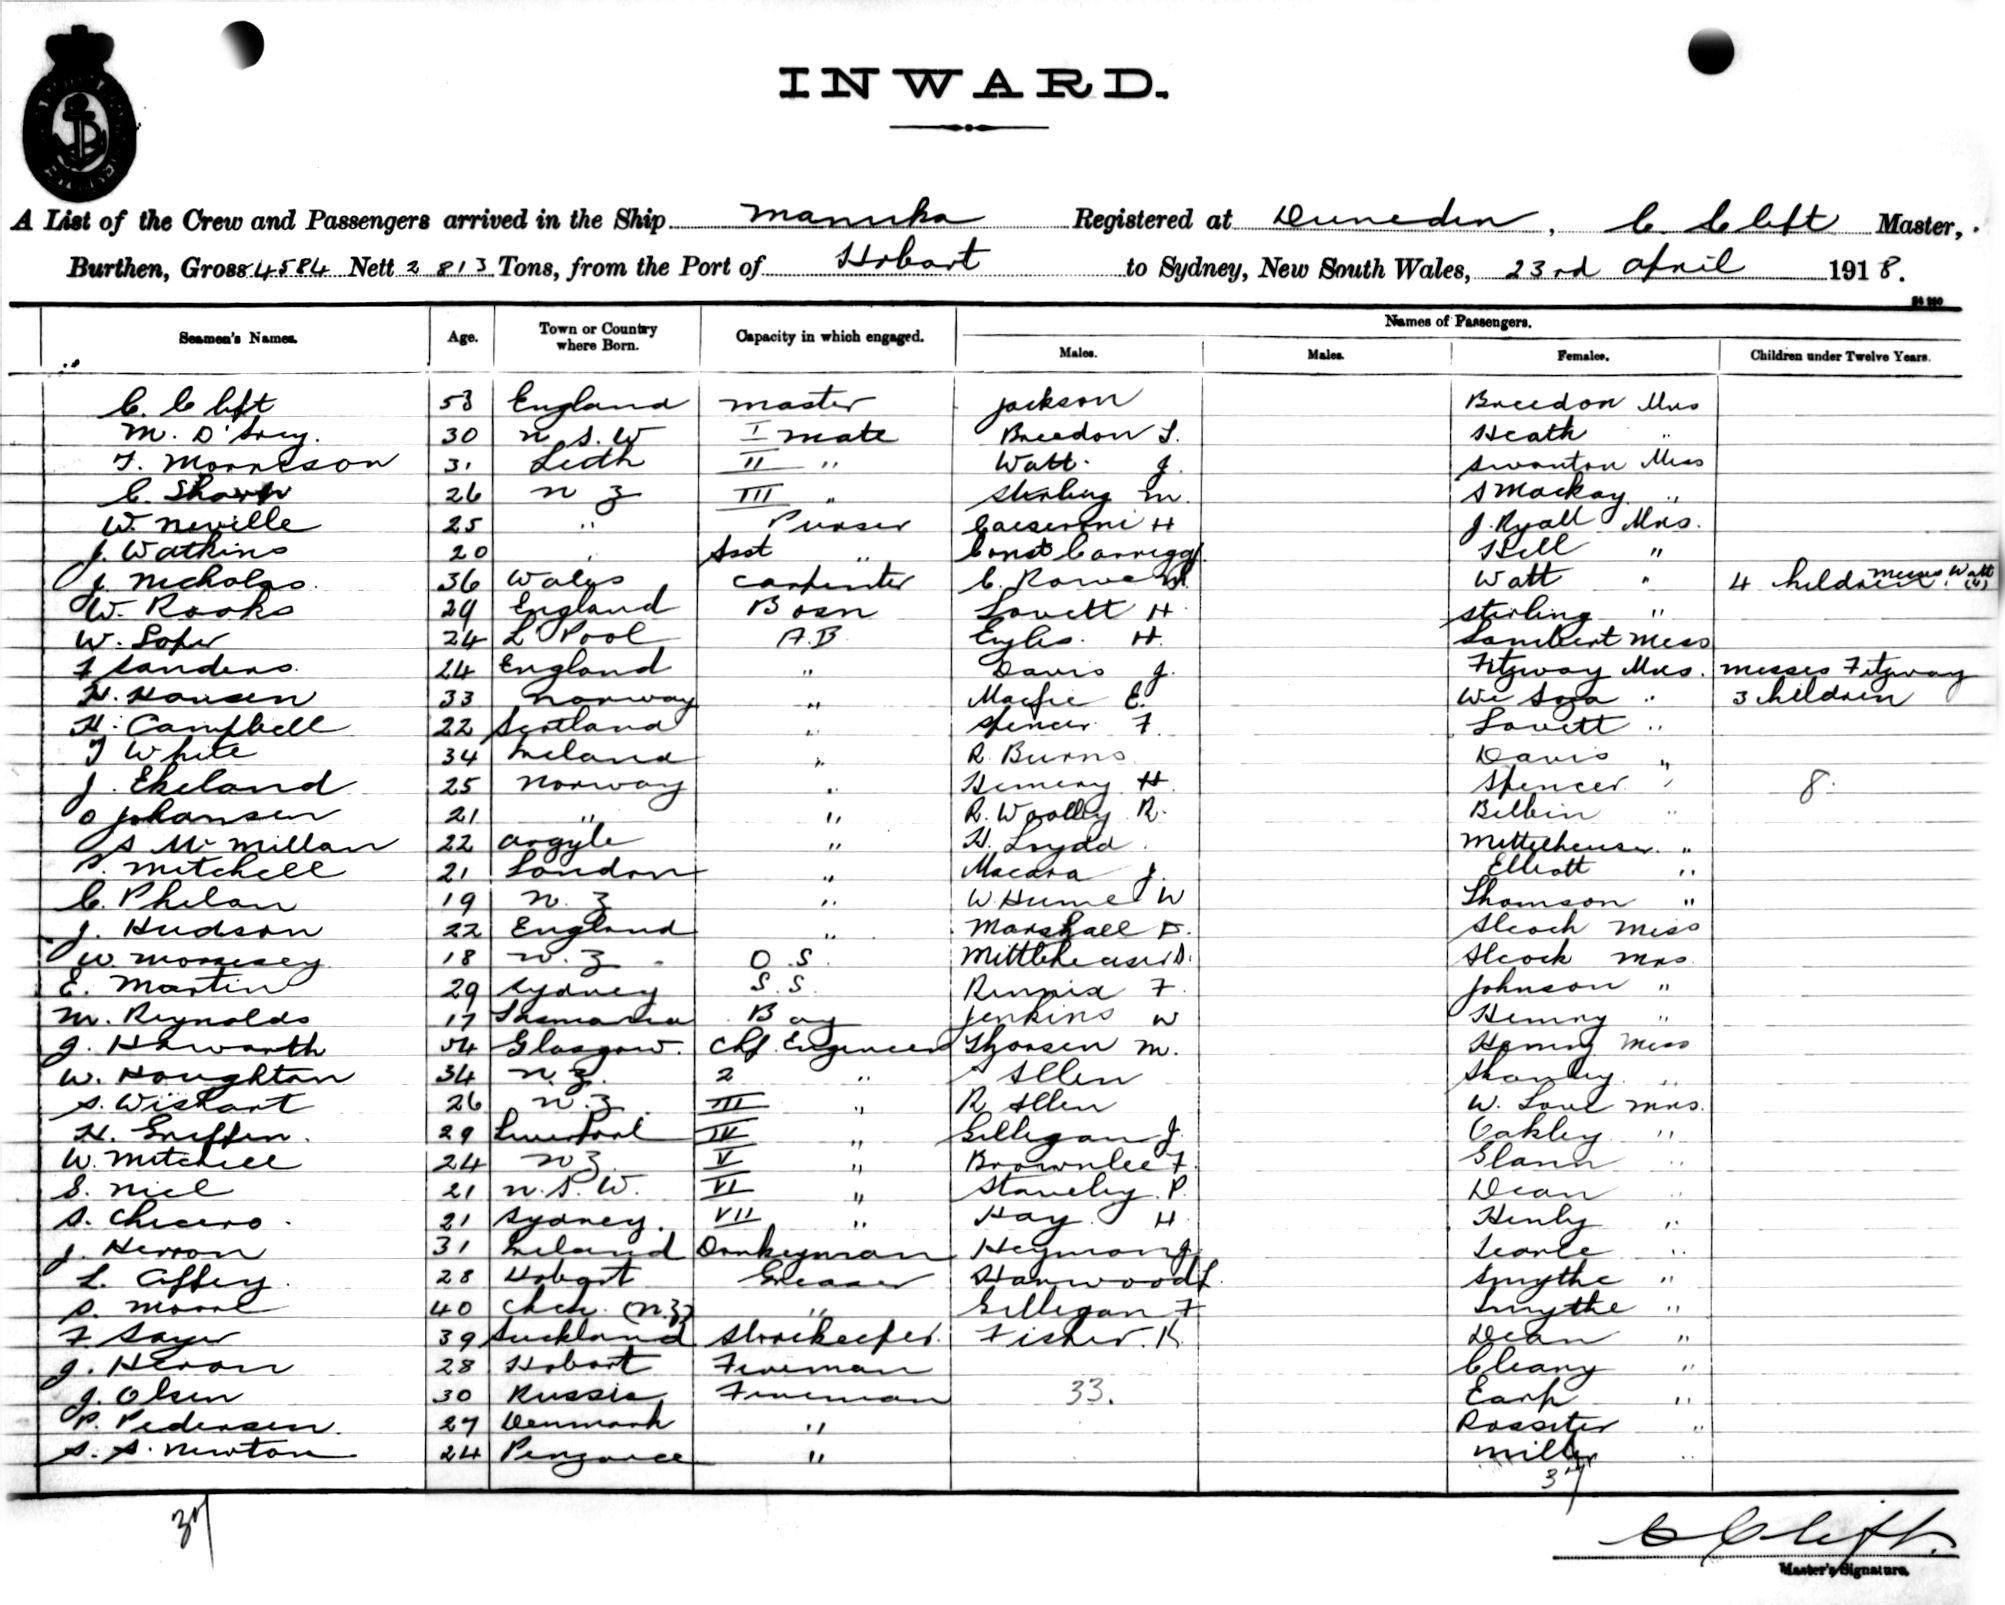 INWARD.
A List of the Crew and Passengers arrived in the Ship Manuka Registered at Dunedin, C. Clift Master,
Burthen, Gross 4584 Nett 2813 Tons, from the Port of Hobart to Sydney, New South Wales, 23rd April 1918.
Names of Passengers.
Seamen's Names. Age. Town or Country where Born. Capacity in which engaged. Males. Males. Females. Children under Twelve Years.
C. Clift 53 England Master Jackson Breedon Mrs
M. 30 N. S. W I Mate Breedon Heath "
T. Morrison 31 Leith II " Watt. J. Swanton Miss
C. Sharp 26 N Z III " Stirling M. S Mackay "
W. Neville 25 " Purser H J. Ryall Mrs.
J. Watkins 20 " Asst " Const Hill "
J. Nicholas. 36 Wales Carpenter C. Rowe Watt " 4 Children Misses Watt (4)
W. Rooks 29 England Bosn Lovett H Stirling "
W. Soper 24 L Pool A.B. Eyles. H. Lambert Miss
F Sanders. 24 England " Davis J. Fitzway Mrs. Misses Fitzway
H. Hansen 33 Norway " Macfie E. " 3 Children
H. Campbell 22 Scotland " Spencer F. Lovett "
T White 34 Ireland " R. Burns Davis "
J. Ekeland 25 Norway " Hemery H. Spencer " 8.
O Johansen 21 " " R. Woolley R. Bilbin "
S McMillan 22 Argyle " H. "
S. Mitchell 21 London " Macara J. Elliott "
C. Phelan 19 N. Z " W. Hume W Thomson "
J. Hudson 22 England " Marshall F. Alcock Miss
W. Morrisey 18 N. Z O. S. D. Alcock Mrs
E. Martin 29 Sydney S. S. F. Johnson "
M. Reynolds 17 Tasmania Boy Jenkins W Hemry "
J. Howarth 54 Glasgow. Chf. Engineer Thorsen M. Hemry Miss
W. Houghton 34 N. Z. 2 " S Allen "
S. Wishart 26 N. Z. III " R Allen W. Love Mrs.
H. Griffin. 29 Liverpool IV " Gilligan J. Oakley "
W. Mitchell 24 N Z. V " Brownlee F. Glann "
S. Niel 21 N. S. W. VI " Staveley P. Dean "
S. Chicero. 21 Sydney. VII " Hay H. Henly "
J. Herron 31 Ireland Donkeyman Heyman J. Searle "
L. Affey. 28 Hobart Greaser Harwood L. Smythe "
S. Moore 40 Chch. (N.Z) " Gilligan F Smythe "
F Sayer 39 Auckland Storekeeper. Fisher. K Dean "
J. Heron 28 Hobart Fireman Cleary "
J. Olsen 30 Russia Fireman 33. Earp "
P. Pedersen. 27 Denmark " Rossiter "
S. S. Newton 24 Penzance " Miller "
37
37
C Clift.
Master's Signature.